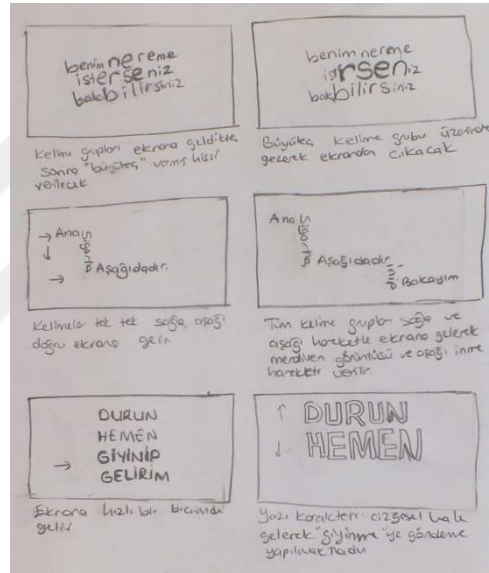 benim nereme
isterseniz
bakabilirsiniz
Kelime grupları ekrana geldikten
sonra "büyüteç" varmış hissi
verilecek
benim nereme
isterseniz
bakabilirsiniz
Büyüteç, kelime grubu üzerinde
gezerek ekrandan çıkacak
→ Ana
↓
→ Aşağıdadır.
Kelimeler tek tek sağa, aşağı
doğru ekrana gelir
Ana
Aşağıdadır.
Bakayım
Tüm kelime grupları sağa ve
aşağı hareketle ekrana gelerek
merdiven görüntüsü ve aşağı inme
hareketi verilir
DURUN
HEMEN
→ GİYİNİP
GELİRİM
Ekrana hızlı bir biçimde
gelir
↑ DURUN
↓ HEMEN
Yazı karakteri çizgisel hale
gelerek "giyinme"ye gönderme
yapılmaktadır